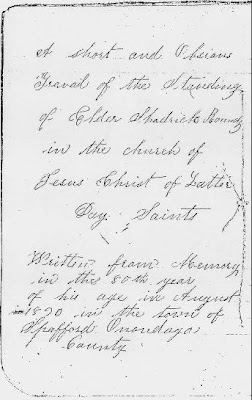 A short and Obsious
Travail of the Standing
of Elder Shadrick Roundy
in the church of
Jesus Christ of Latter
Day Saints
Written from Memory
in the 80th year
of his age in August
1890 in the town of
Spafford Onondaga
County